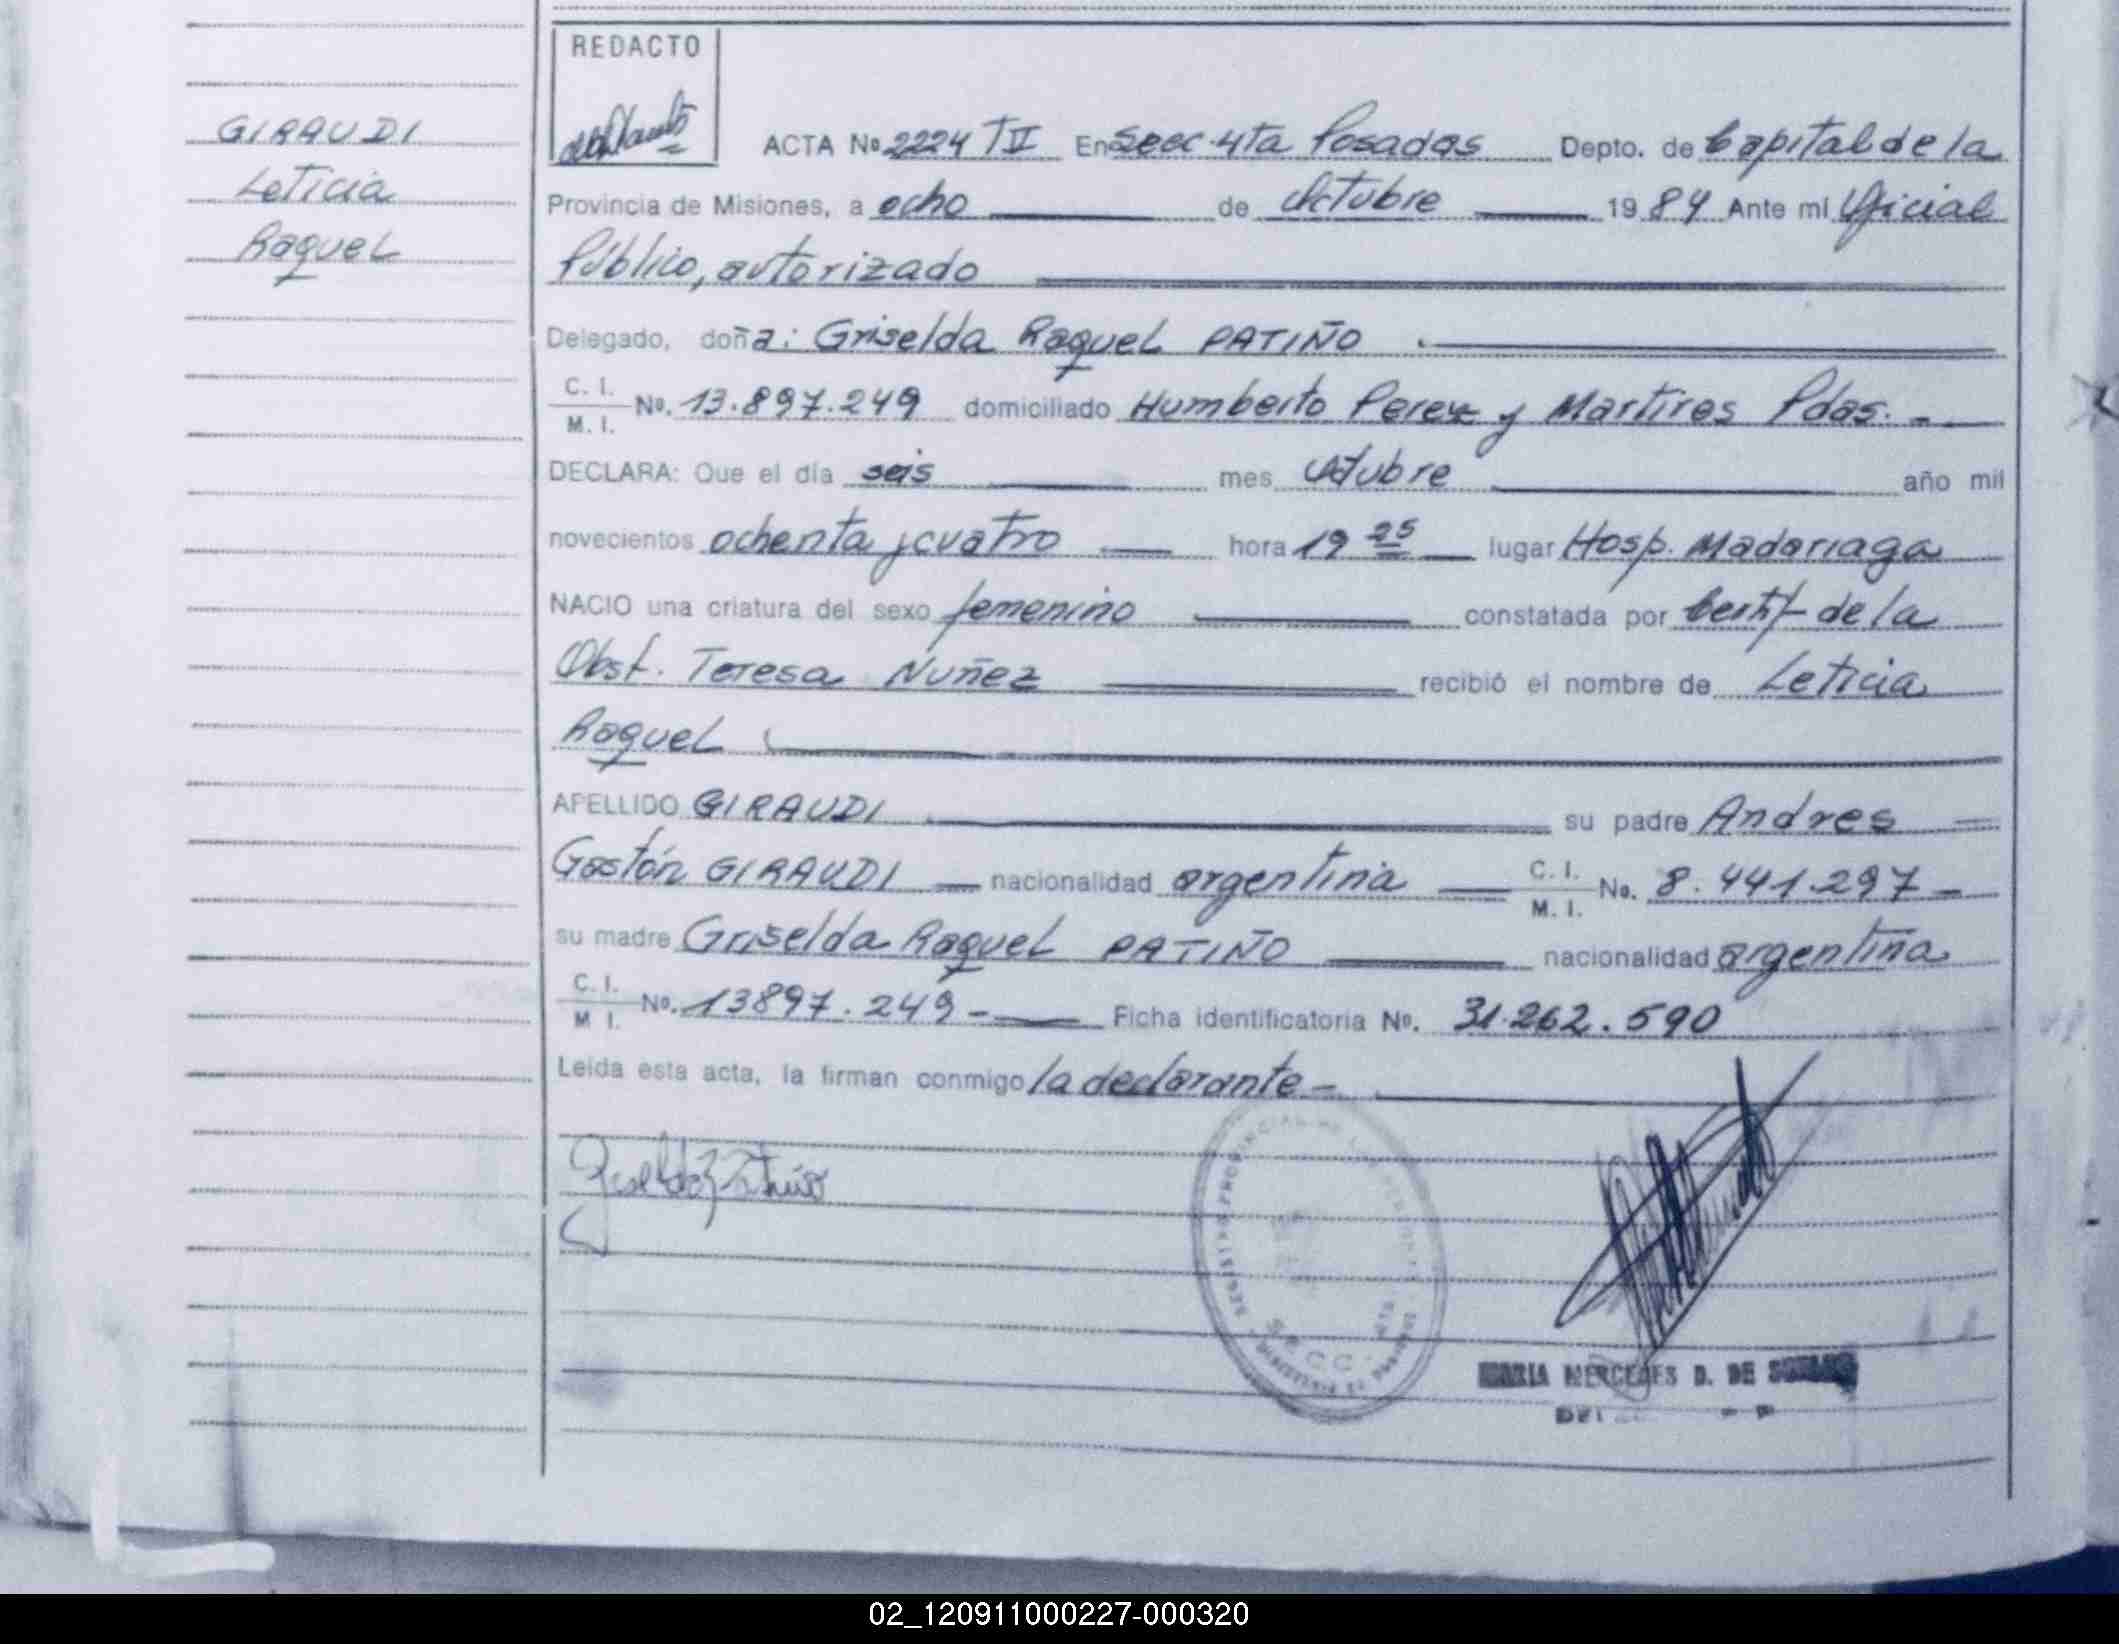 REDACTO
GIRAUDI
Leticia
Raquel
ACTA No 2224 TII En Secc. 4ta Posadas Depto. de Capital de la
Provincia de Misiones, a ocho de Octubre 1984 Ante mi Oficial
Público, autorizado
Delegado, doña: Griselda Raquel PATIÑO
C. I.
M. I. No. 13.897.249 domiciliado Humberto Perez y Martires Pdas. -
DECLARA: Que el día seis mes Octubre año mil
novecientos ochenta y cuatro hora 19 25 lugar Hosp. Madariaga
NACIO una criatura del sexo femenino constatada por Certif de la
Obst. Teresa Nuñez recibió el nombre de Leticia
Raquel
APELLIDO GIRAUDI su padre Andres
Gastón GIRAUDI nacionalidad argentina C. I. M. I. No. 8.441.297 -
su madre Griselda Raquel PATIÑO nacionalidad argentina
C. I.
M I. No. 13897.249 - Ficha identificatoria No. 31.262.590
Leída esta acta, la firman conmigo la declarante -
MARIA MERCEDES D. DE
02_120911000227-000320